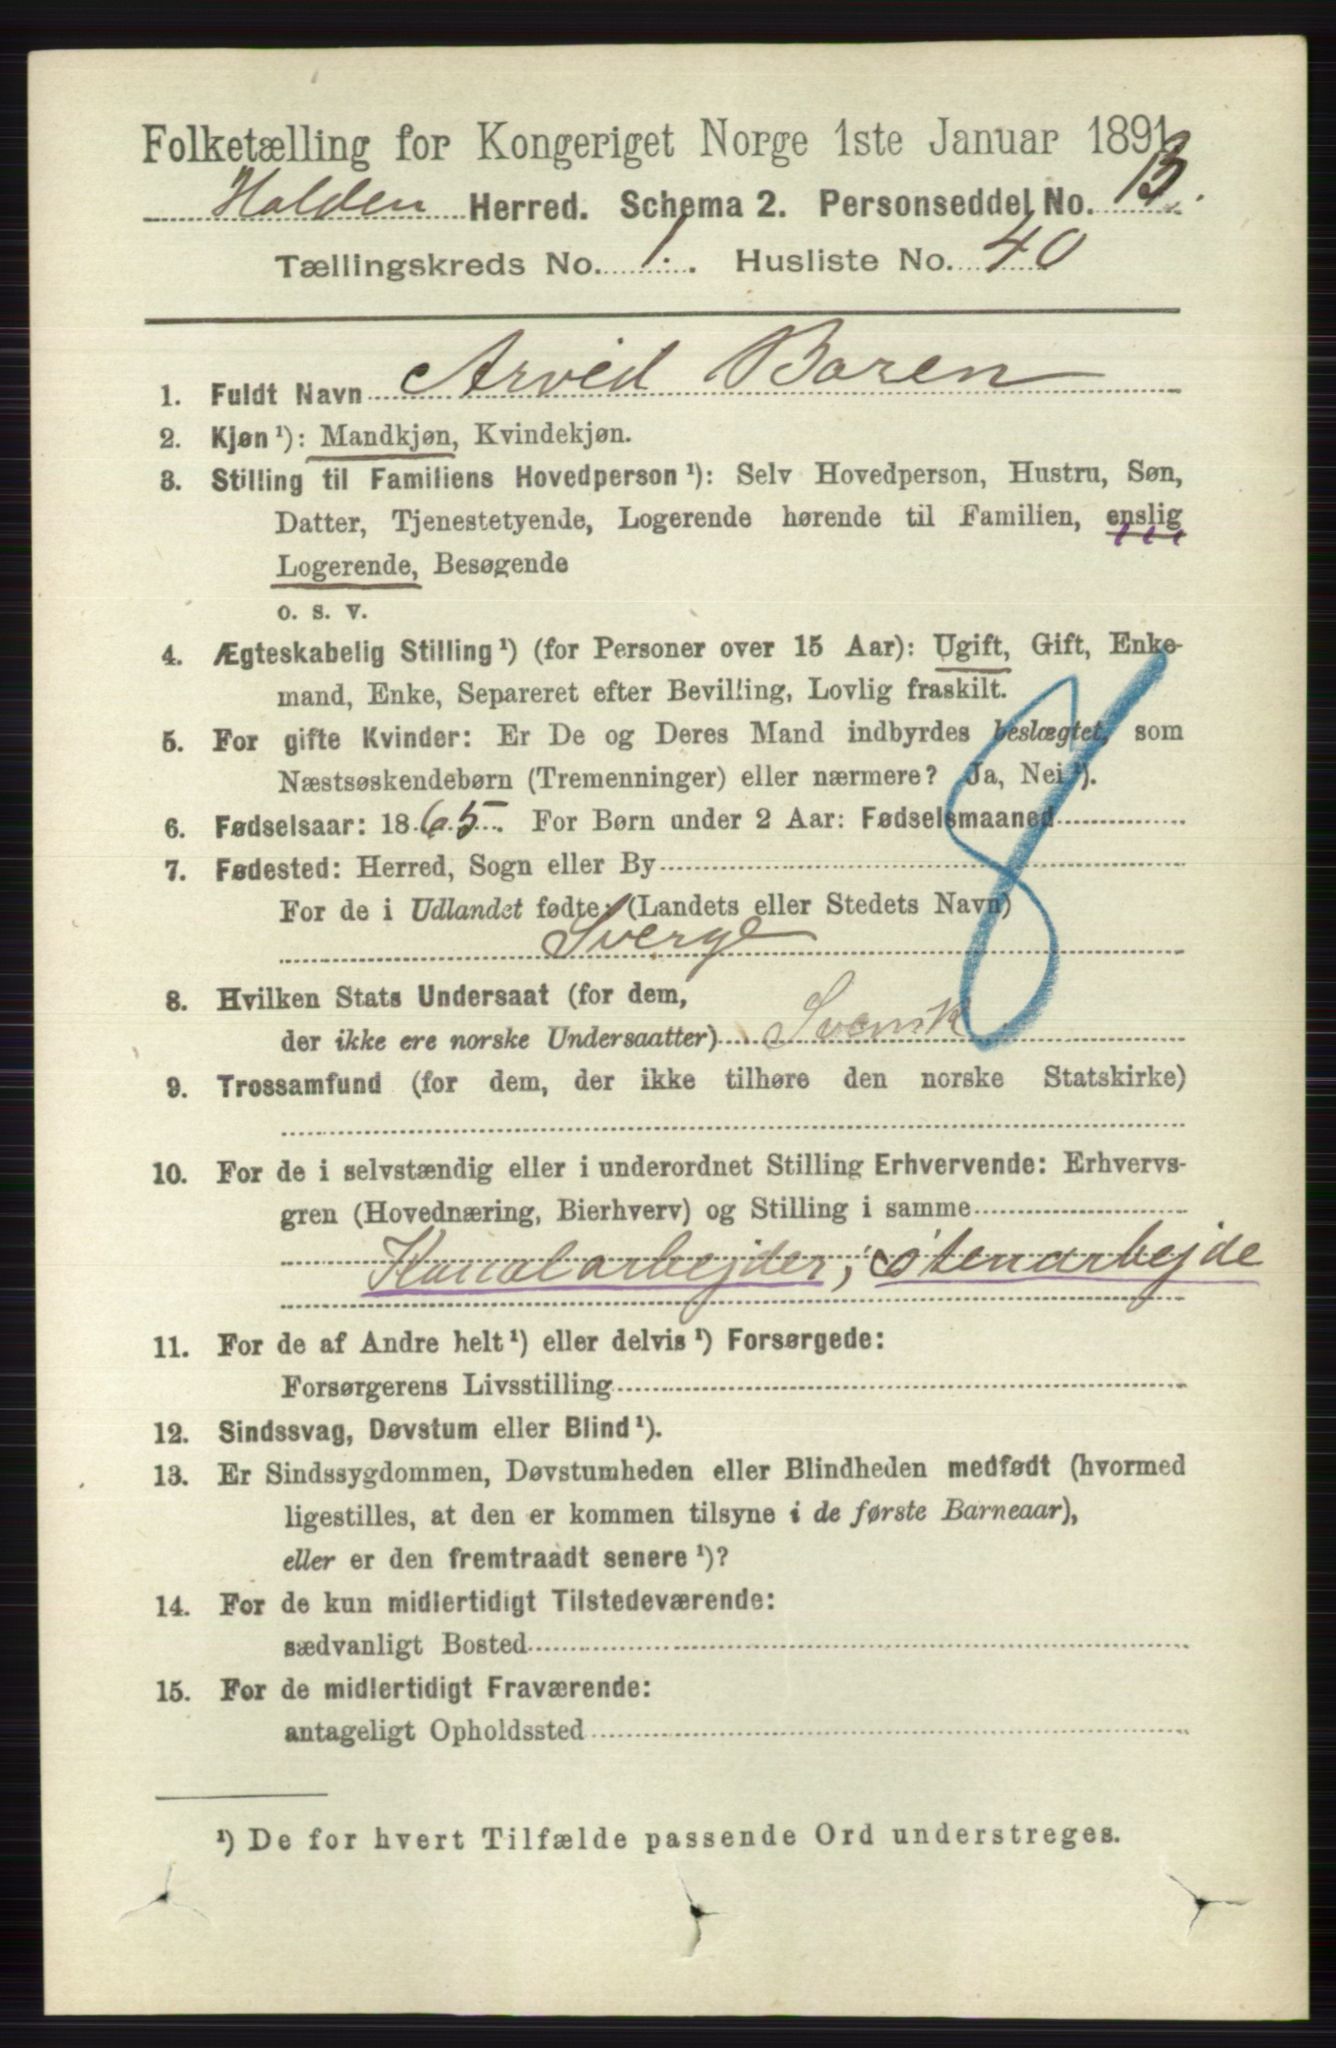 Folketælling for Kongeriget Norge 1ste Januar 1891.
Holden Herred. Schema 2. Personseddel No. 13.
Tællingskreds No. 1. Husliste No. 40
1. Fuldt Navn Arvid Boren
2. Kjøn ¹): Mandkjøn, Kvindekjøn.
3. Stilling til Familiens Hovedperson ¹): Selv Hovedperson, Hustru, Søn,
Datter, Tjenestetyende, Logerende hørende til Familien, enslig
Logerende, Besøgende
o. s. v.
4. Ægteskabelig Stilling ¹) (for Personer over 15 Aar): Ugift, Gift, Enke-
mand, Enke, Separeret efter Bevilling, Lovlig fraskilt.
5. For gifte Kvinder: Er De og Deres Mand indbyrdes beslægtet, som
Næstsøskendebørn (Tremenninger) eller nærmere? Ja, Nei ¹).
8
6. Fødselsaar: 1865. For Børn under 2 Aar: Fødselsmaaned
7. Fødested: Herred, Sogn eller By
For de i Udlandet fødte: (Landets eller Stedets Navn)
Sverge
8. Hvilken Stats Undersaat (for dem,
der ikke ere norske Undersaatter) Svensk
9. Trossamfund (for dem, der ikke tilhøre den norske Statskirke)
10. For de i selvstændig eller i underordnet Stilling Erhvervende: Erhvervs-
gren (Hovednæring, Bierhverv) og Stilling i samme
Kanalarbejder, Stenarbejde
11. For de af Andre helt ¹) eller delvis ¹) Forsørgede:
Forsørgerens Livsstilling
12. Sindssvag, Døvstum eller Blind ¹).
13. Er Sindssygdommen, Døvstumheden eller Blindheden medfødt (hvormed
ligestilles, at den er kommen tilsyne i de første Barneaar),
eller er den fremtraadt senere ¹)?
14. For de kun midlertidigt Tilstedeværende:
sædvanligt Bosted
15. For de midlertidigt Fraværende:
antageligt Opholdssted
¹) De for hvert Tilfælde passende Ord understreges.